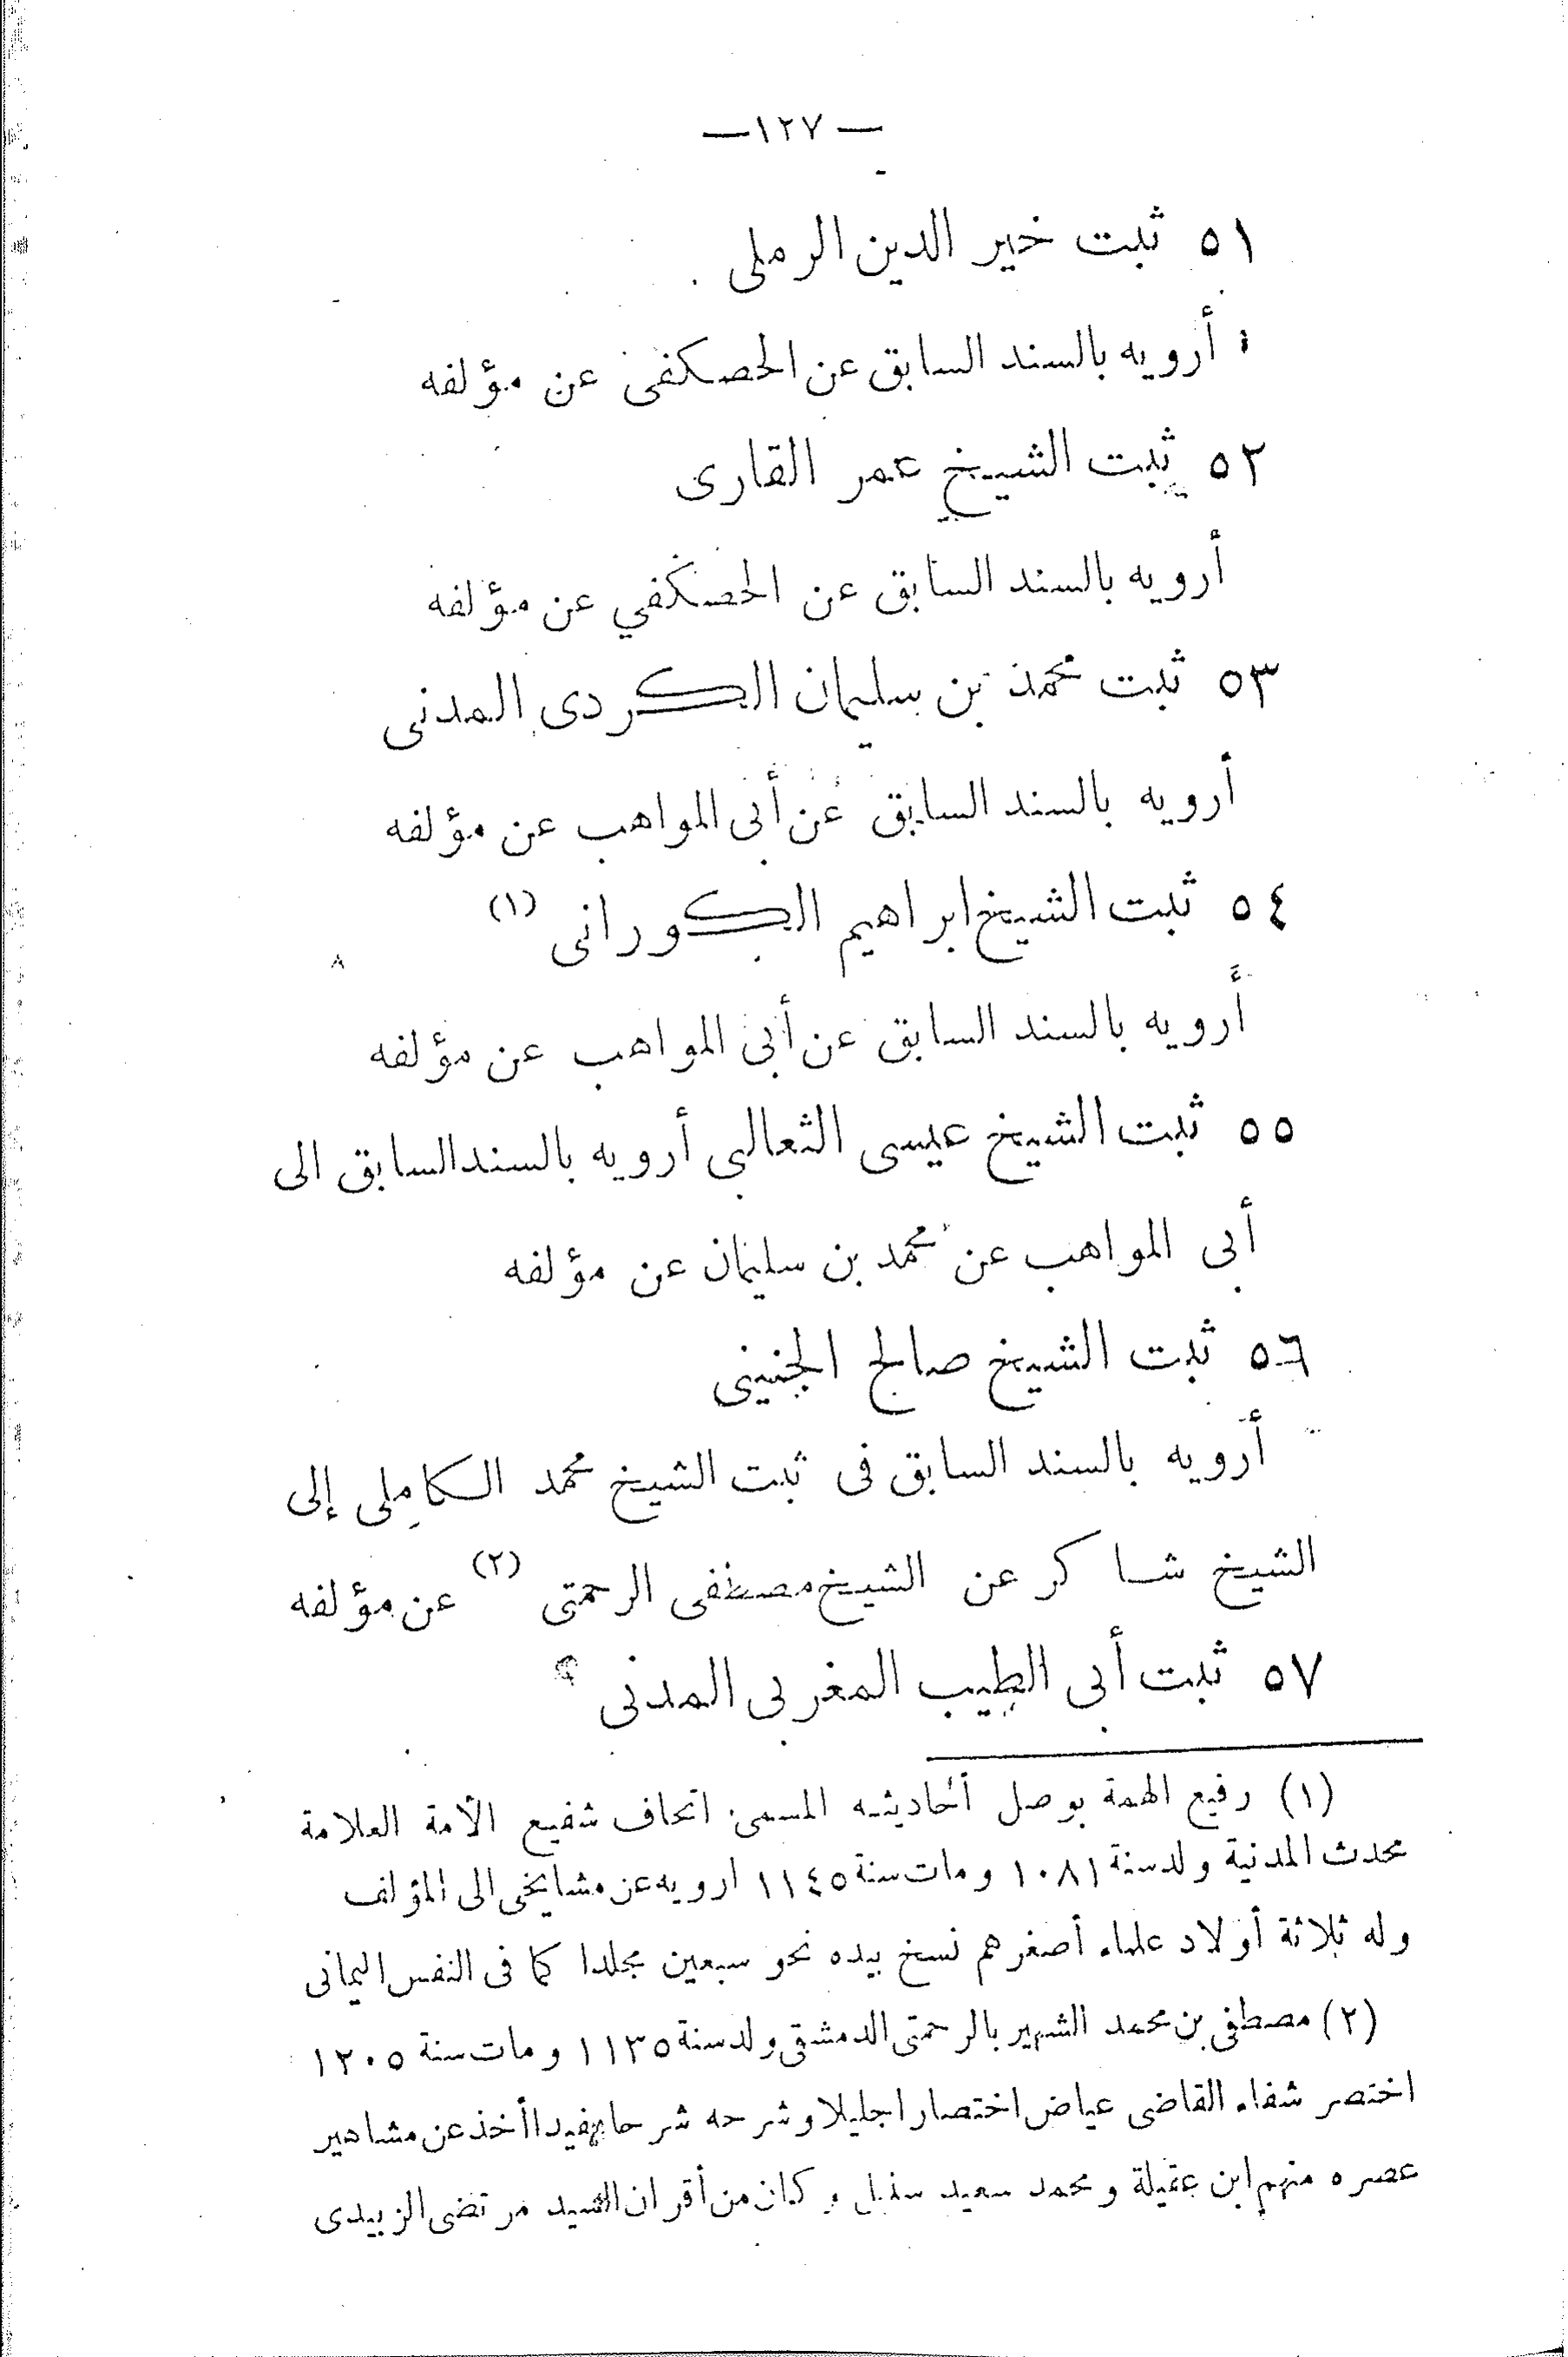 — ١٢٧ —
٥١ ثبت خير الدين الرملى
أرويه بالسند السابق عن الحصكفى عن مؤلفه
٥٢ ثبت الشيخ عمر القارى
أرويه بالسند السابق عن الحصكفي عن مؤلفه
٥٣ ثبت محمد بن سليمان الكردى المدنى
أرويه بالسند السابق عن أبى المواهب عن مؤلفه
٥٤ ثبت الشيخ ابراهيم الكورانى (١)
أرويه بالسند السابق عن أبى المواهب عن مؤلفه
٥٥ ثبت الشيخ عيسى الثعالبى أرويه بالسند السابق الى
أبى المواهب عن محمد بن سليمان عن مؤلفه
٥٦ ثبت الشيخ صالح الجنينى
أرويه بالسند السابق فى ثبت الشيخ محمد الكاملى إلى
الشيخ شاكر عن الشيخ مصطفى الرحمتى (٢) عن مؤلفه
٥٧ ثبت أبى الطيب المغربى المدنى
(١) رفيع الهمة بوصل أحاديثه المسمى اتحاف شفيع الأمة العلامة
محدث المدنية ولد سنة ١٠٨١ ومات سنة ١١٤٥ ارويه عن مشايخى الى المؤلف
وله ثلاثة أولاد علماء أصغرهم نسخ بيده نحو سبعين مجلدا كما فى النفس اليمانى
(٢) مصطفى بن محمد الشهير بالرحمتى الدمشقى ولد سنة ١١٣٥ ومات سنة ١٢٠٥
اختصر شفاء القاضى عياض اختصارا جليلا وشرحه شرحا مفيدا أخذ عن مشاهير
عصره منهم ابن عقيلة ومحمد سعيد سنبل وكان من أقران السيد مرتضى الزبيدى